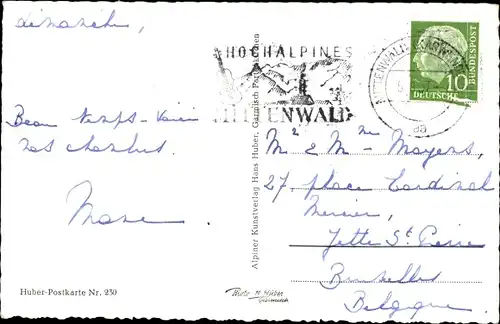 dimanche,
HOCHALPINES
MITTENWALD
MITTENWALD (KARWENDEL)
10
DEUTSCHE
BUNDESPOST
Beau temps - 
nos
M^r & M^me Meyers,
27 place Cardinal
Mercier,
Jette St Pierre
Bruxelles
Belgique
Alpiner Kunstverlag Hans Huber, Garmisch Partenkirchen
Huber-Postkarte Nr. 230
Photo H. Huber
Garmisch